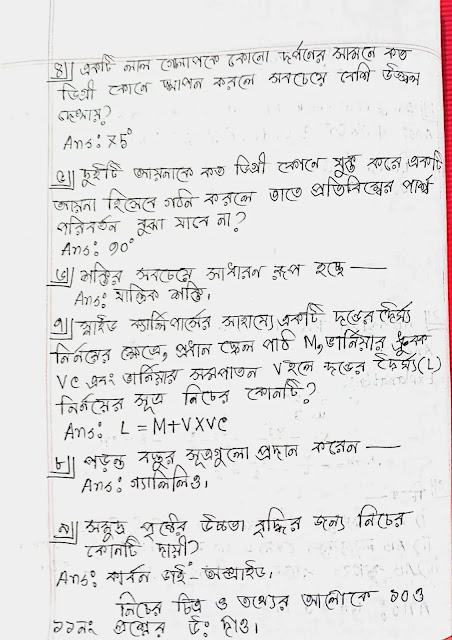 ৪॥ একটি লাল গোলাপকে কোনো দর্পনের সামনে কত
ডিগ্রী কোনে স্থাপন করলে সবচেয়ে বেশি উজ্জ্বল
দেখায়?
Ans: ২৫°
৫॥ দুইটি আয়নাকে কত ডিগ্রী কোনে যুক্ত করে একটি
আয়না হিসেবে গঠন করলে তাতে প্রতিবিম্বের পার্শ্ব
পরিবর্তন বুঝা যাবে না?
Ans: 90°
৬॥ শক্তির সবচেয়ে সাধারন রূপ হচ্ছে —
Ans: যান্ত্রিক শক্তি।
৭॥ স্লাইড ক্যালিপার্সের সাহায্যে একটি দন্ডের দৈর্ঘ্য
নির্নয়ের ক্ষেত্রে, প্রধান স্কেল পাঠ M, ভার্নিয়ার ধ্রুবক
VC এবং ভার্নিয়ার সমপাতন V হলে দন্ডের দৈর্ঘ্য(L)
নির্নয়ের সূত্র নিচের কোনটি?
Ans: L = M+V×VC
৮॥ পড়ন্ত বস্তুর সূত্রগুলো প্রদান করেন —
Ans: গ্যালিলিও।
৯॥ সমুদ্র পৃষ্ঠের উচ্চতা বৃদ্ধির জন্য নিচের
কোনটি দায়ী?
Ans: কার্বন ডাই-অক্সাইড।
নিচের চিত্র ও তথ্যের আলোকে ১০ ও
১১নং প্রশ্নের উঃ দাও।